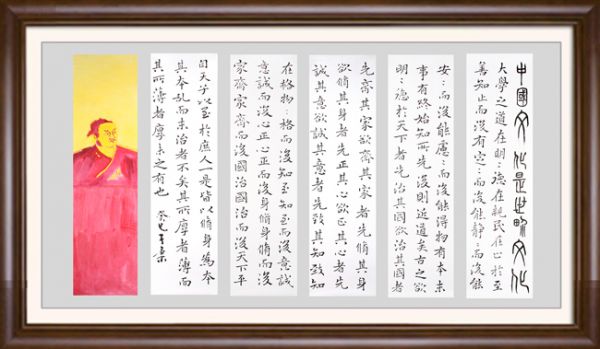 中國文化是世界文化
大學之道在明〻德在親民在止於至
善知止而後有定〻而後能靜〻而後能
安〻而後能慮〻而後能得物有本末
事有終始知所先後則近道矣古之欲
明〻德於天下者先治其國欲治其國者
先齊其家欲齊其家者先脩其身
欲脩其身者先正其心欲正其心者先
誠其意欲誠其意者先致其知致知
在格物〻格而後知至知至而後意誠
意誠而後心正心正而後身脩身脩而後
家齊家齊而後國治國治而後天下平
自天子以至於庶人一是皆以脩身為本
其本亂而末治者不矣其所厚者薄而
其所薄者厚未之有也